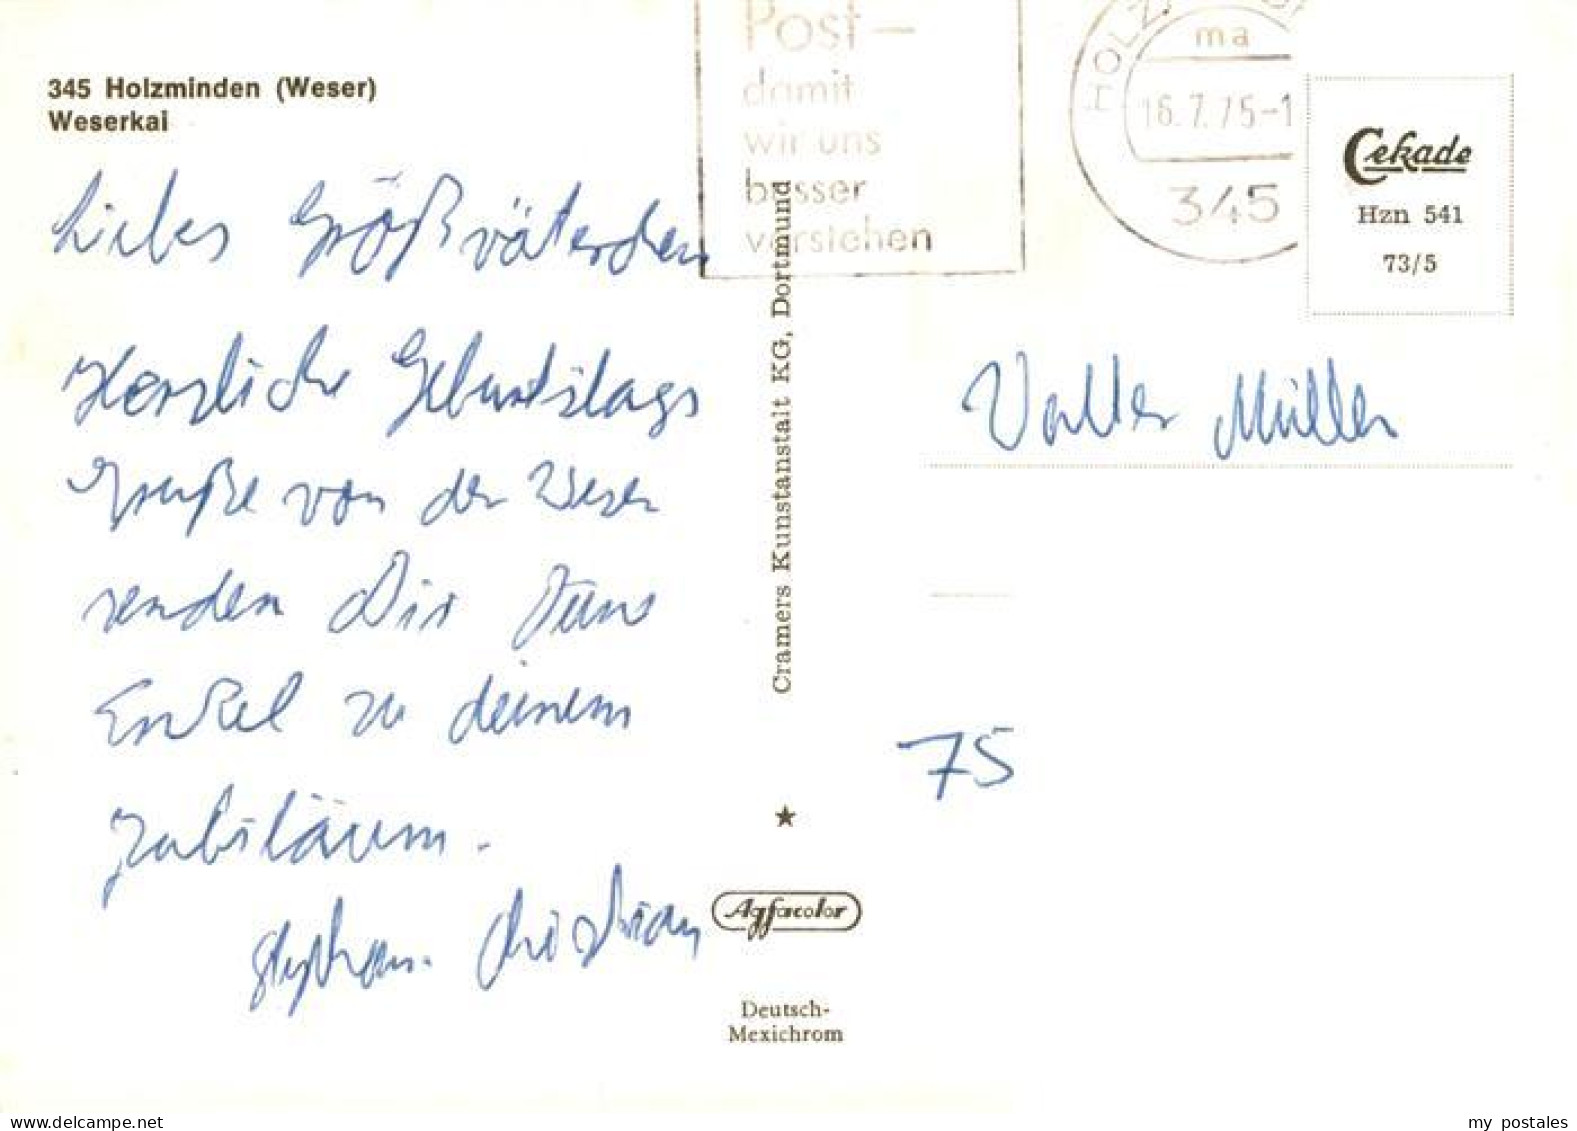 345 Holzminden (Weser)
Weserkai
Post–
damit
wir uns
besser
verstehen
HOLZ
ma
16.7.75-1
345
Cekade
Hzn 541
73/5
Liebes Großväterchen
Herzliche Geburtstags
Grüße von der Weser
senden Dir Deine
Enkel zu deinem
Jubiläum.
Stephan. Christian
Cramers Kunstanstalt KG, Dortmund
Müller
75
Agfacolor
Deutsch-
Mexichrom
www.delcampe.net
my postales